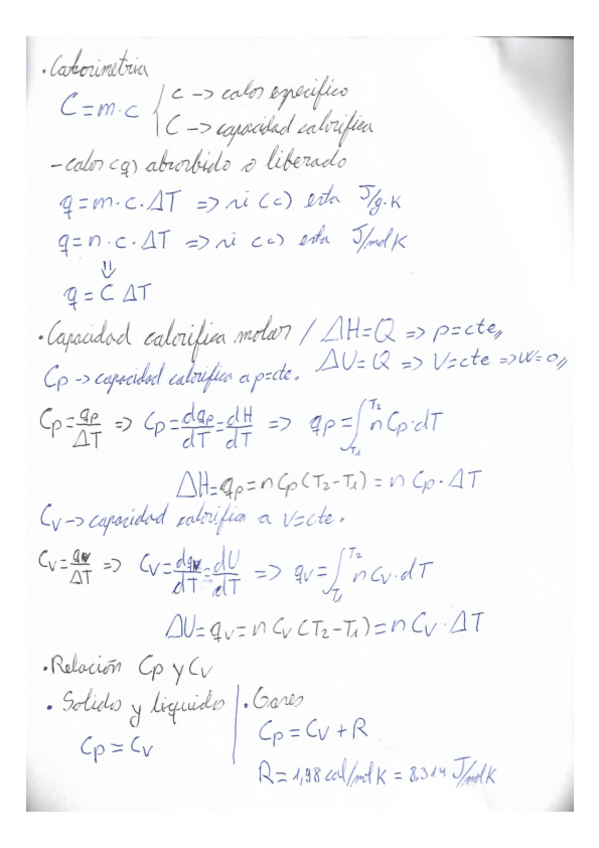 · Calorimetria
C = m·c { c -> calor especifico
C -> capacidad calorifica
- calor (q) absorbido o liberado
q = m·c·ΔT => si (c) esta J/g·K
q = n·c·ΔT => si (c) esta J/mol K
⇓
q = C ΔT
· Capacidad calorifica molar / ΔH = Q => p = cte,,
ΔU = Q => V = cte => W = 0,,
Cp -> capacidad calorifica a p=cte.
Cp = qp/ΔT => Cp = dqp/dT = dH/dT => qp = ∫T1^T2 n Cp·dT
ΔH = qp = n Cp (T2 - T1) = n Cp · ΔT
Cv -> capacidad calorifica a V=cte.
Cv = qv/ΔT => Cv = dqv/dT = dU/dT => qv = ∫T1^T2 n Cv·dT
ΔU = qv = n Cv (T2 - T1) = n Cv · ΔT
· Relación Cp y Cv
· Solido y liquido
Cp = Cv
· Gases
Cp = Cv + R
R = 1,98 cal/mol K = 8.314 J/mol K